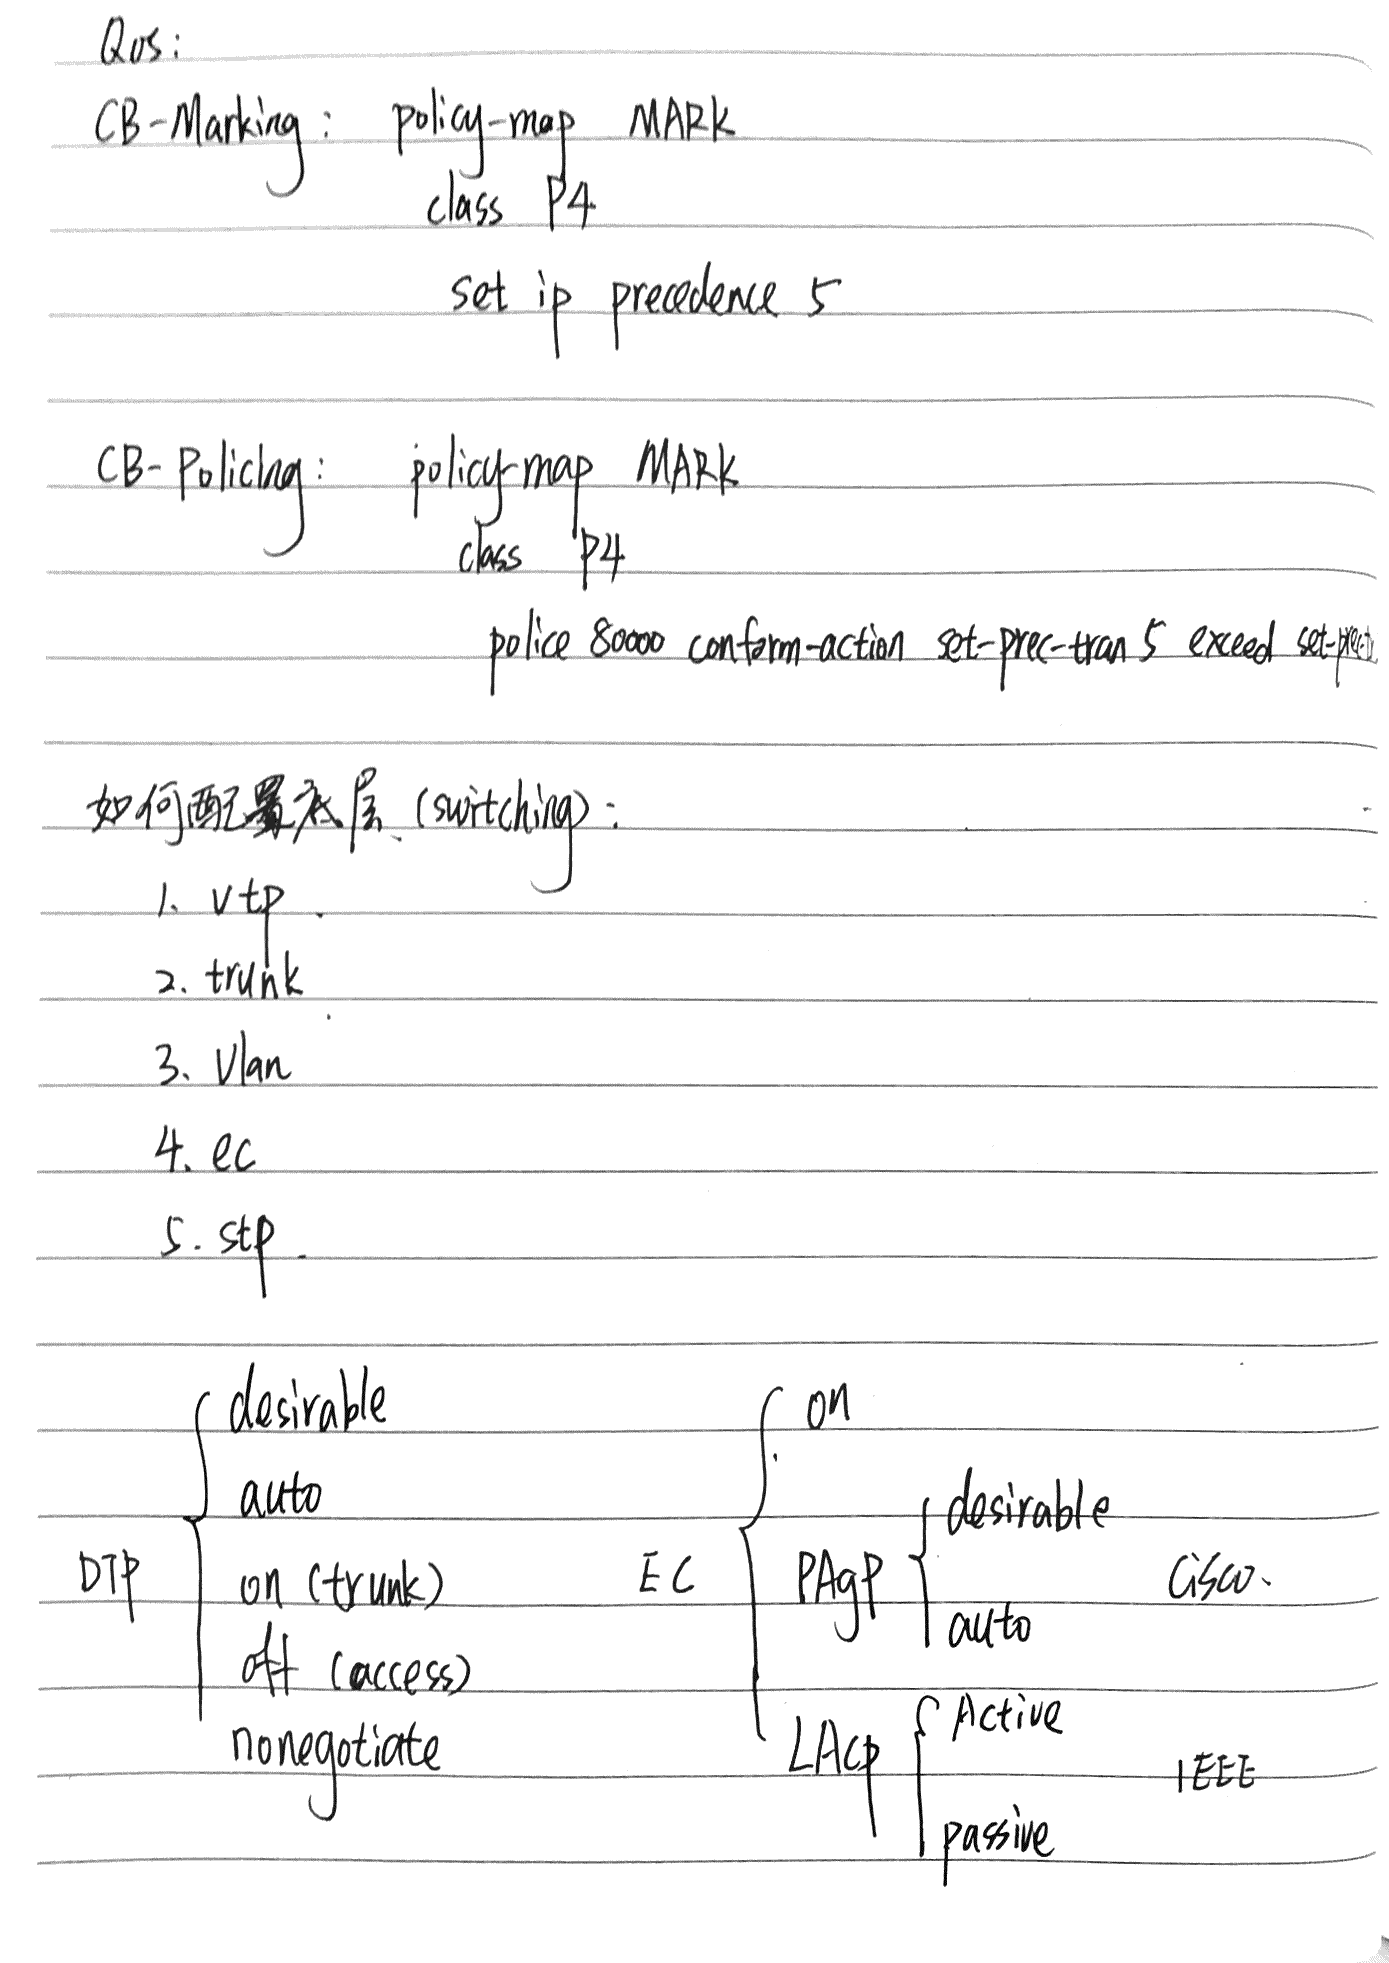 Qos:
CB-Marking: policy-map MARK
class P4
set ip precedence 5
CB-PolicIng: policy-map MARK
class P4
police 80000 conform-action set-prec-tran 5 exceed set-prec-t
如何配置底层 (switching):
1. vtp.
2. trunk
3. Vlan
4. ec
5. stp.
DTP
desirable
auto
on (trunk)
off (access)
nonegotiate
EC
on
PAgP
desirable
auto
Cisco.
LAcp
Active
passive
IEEE